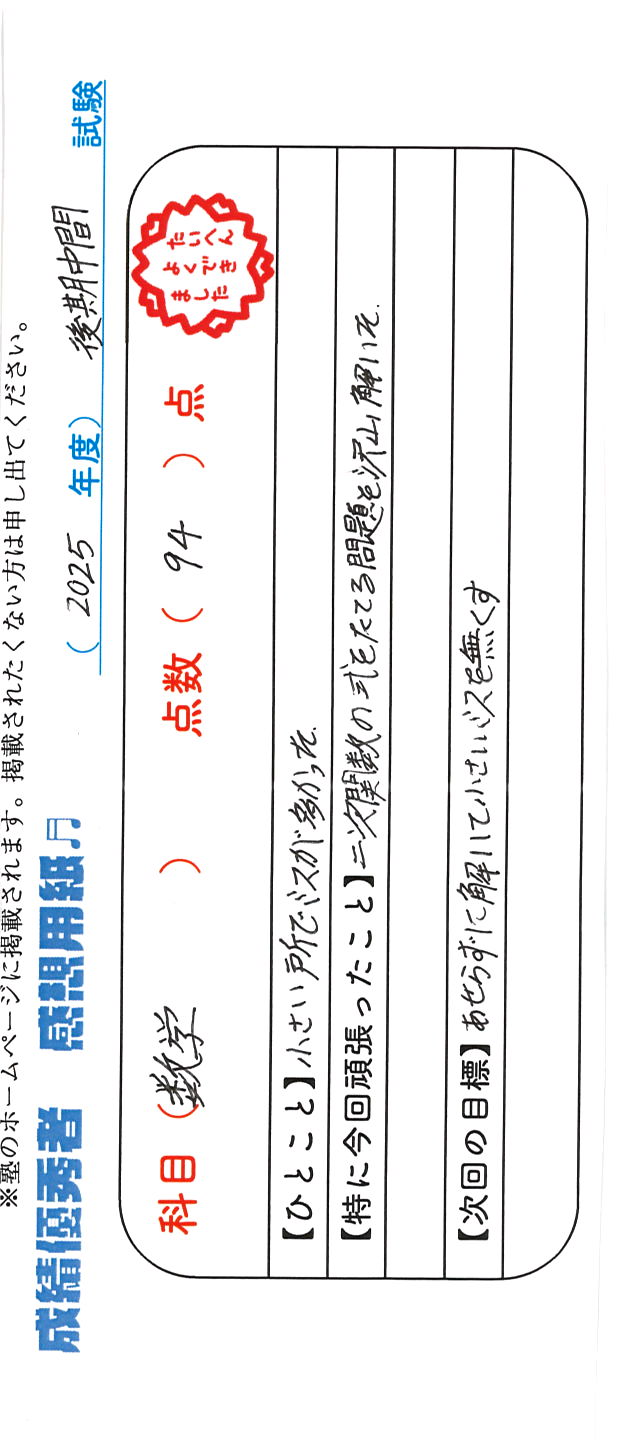 ※塾のホームページに掲載されます。掲載されたくない方は申し出てください。
成績優秀者 感想用紙♫
( 2025 年度) 後期中間 試験
科目 (数学) 点数 ( 94 ) 点
たいへん
よくでき
ました
【ひとこと】小さい所でミスが多かった.
【特に今回頑張ったこと】二次関数の式をたてる問題を沢山解いた.
【次回の目標】あせらずに解いて小さいミスを無くす